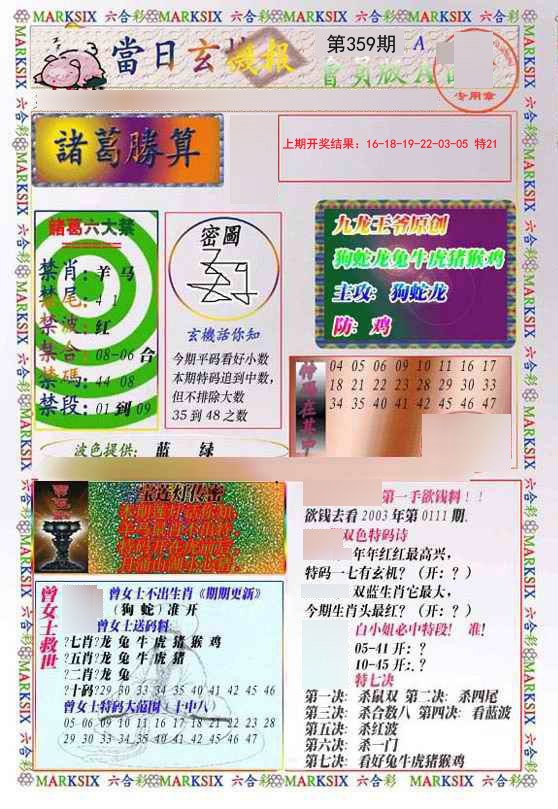 MARKSIX 六合彩 MARKSIX 六合彩 MARKSIX 六合彩 MARKSIX 六合彩
當日玄機报
第359期
A
會員版A
专用章
諸葛勝算
上期开奖结果：16-18-19-22-03-05 特21
諸葛六大禁
禁肖：羊 马
禁尾：4 1
禁波：红
禁合：08-06 合
禁碼：44 08
禁段：01 到 09
密圖
玄機話你知
今期平码看好小数
本期特码追到中数，
但不排除大数
35 到 48 之数
九龙王爷原创
狗蛇龙兔牛虎猪猴鸡
主攻：狗蛇龙
防：鸡
04 05 06 09 10 11 16 17
18 21 22 23 28 29 30 33
34 35 40 41 42 45 46 47
波色提供： 蓝 绿
宝莲灯传密
曾女士救世
曾女士不出生肖《期期更新》
(狗 蛇) 准 开
曾女士送码料:
?七肖?龙 兔 牛 虎 猪 猴 鸡
?五肖?龙 兔 牛 虎 猪
?二肖?龙 兔
?十码?29 30 33 34 35 40 41 42 45 46
曾女士特码大范围（十中八）
05 06 09 10 11 16 17 18 21 22 23 28
29 30 33 34 35 40 41 42 45 46 47
第一手欲钱料！！
欲钱去看 2003 年第 0111 期.
双色特码诗
年年红红最高兴，
特码一七有玄机？（开：？）
双蓝生肖它最大，
今期生肖头最红？（开：？）
白小姐必中特段！ 准！
05-41 开：？
10-45 开：？
特七决
第一决：杀鼠双 第二决：杀四尾
第三决：杀合数八 第四决：看蓝波
第五决：杀红波
第六决：杀一门
第七决：看好兔牛虎猪猴鸡
MARKSIX 六合彩 MARKSIX 六合彩 MARKSIX 六合彩 MARKSIX 六合彩